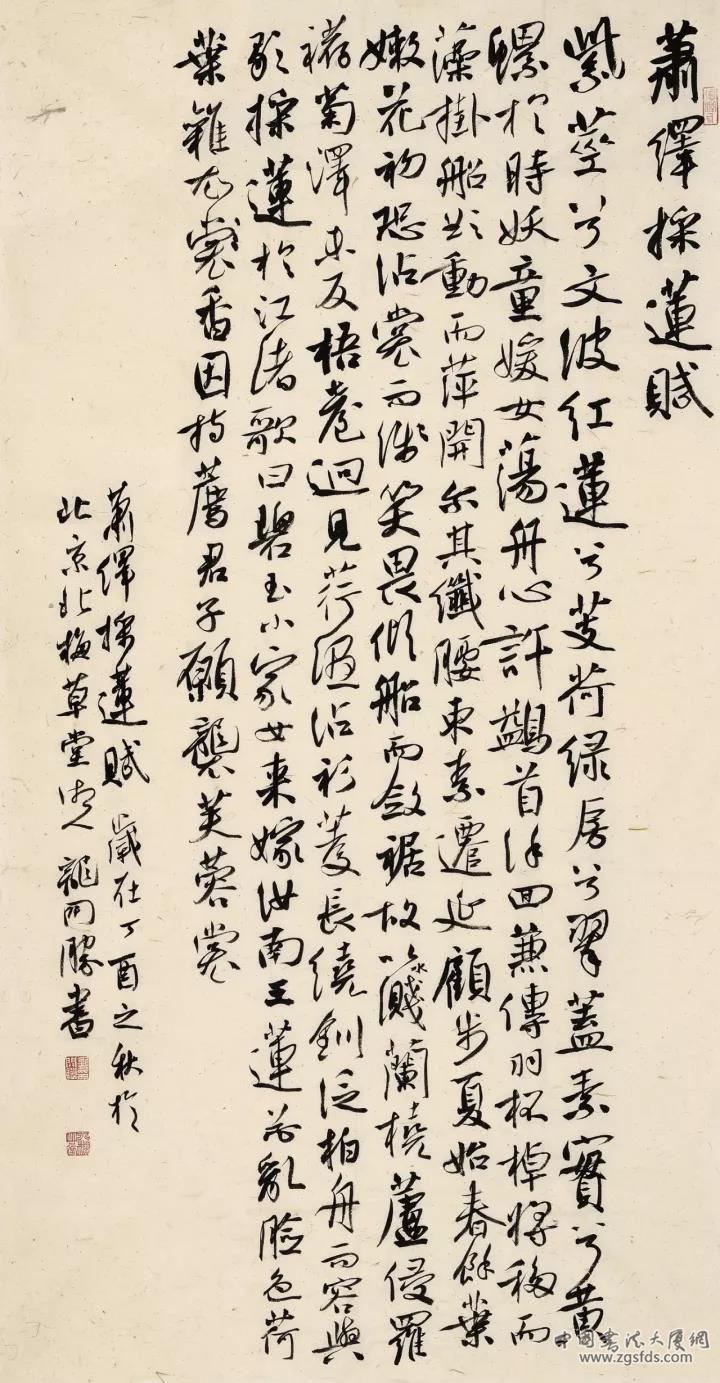 蕭繹採蓮賦
紫莖兮文波紅蓮兮芰荷綠房兮翠蓋素實兮黃
螺於時妖童媛女蕩舟心許鷁首徐回兼傳羽杯棹將移而
藻掛船欲動而萍開尔其纖腰束素遷延顧步夏始春餘葉
嫩花初恐沾裳而淺笑畏傾船而斂裾故以濺蘭橈蘆侵羅
䙓菊澤未反梧臺迥見荇濕沾衫菱長繞釧泛柏舟而容與
歌採蓮於江渚歌曰碧玉小家女來嫁汝南王蓮花亂臉色荷
葉雜衣裳香因持薦君子願襲芙蓉裳
蕭繹採蓮賦 歲在丁酉之秋於
北京北梅草堂湘人龍開勝書
中國書法大厦網
www.zgsfds.com